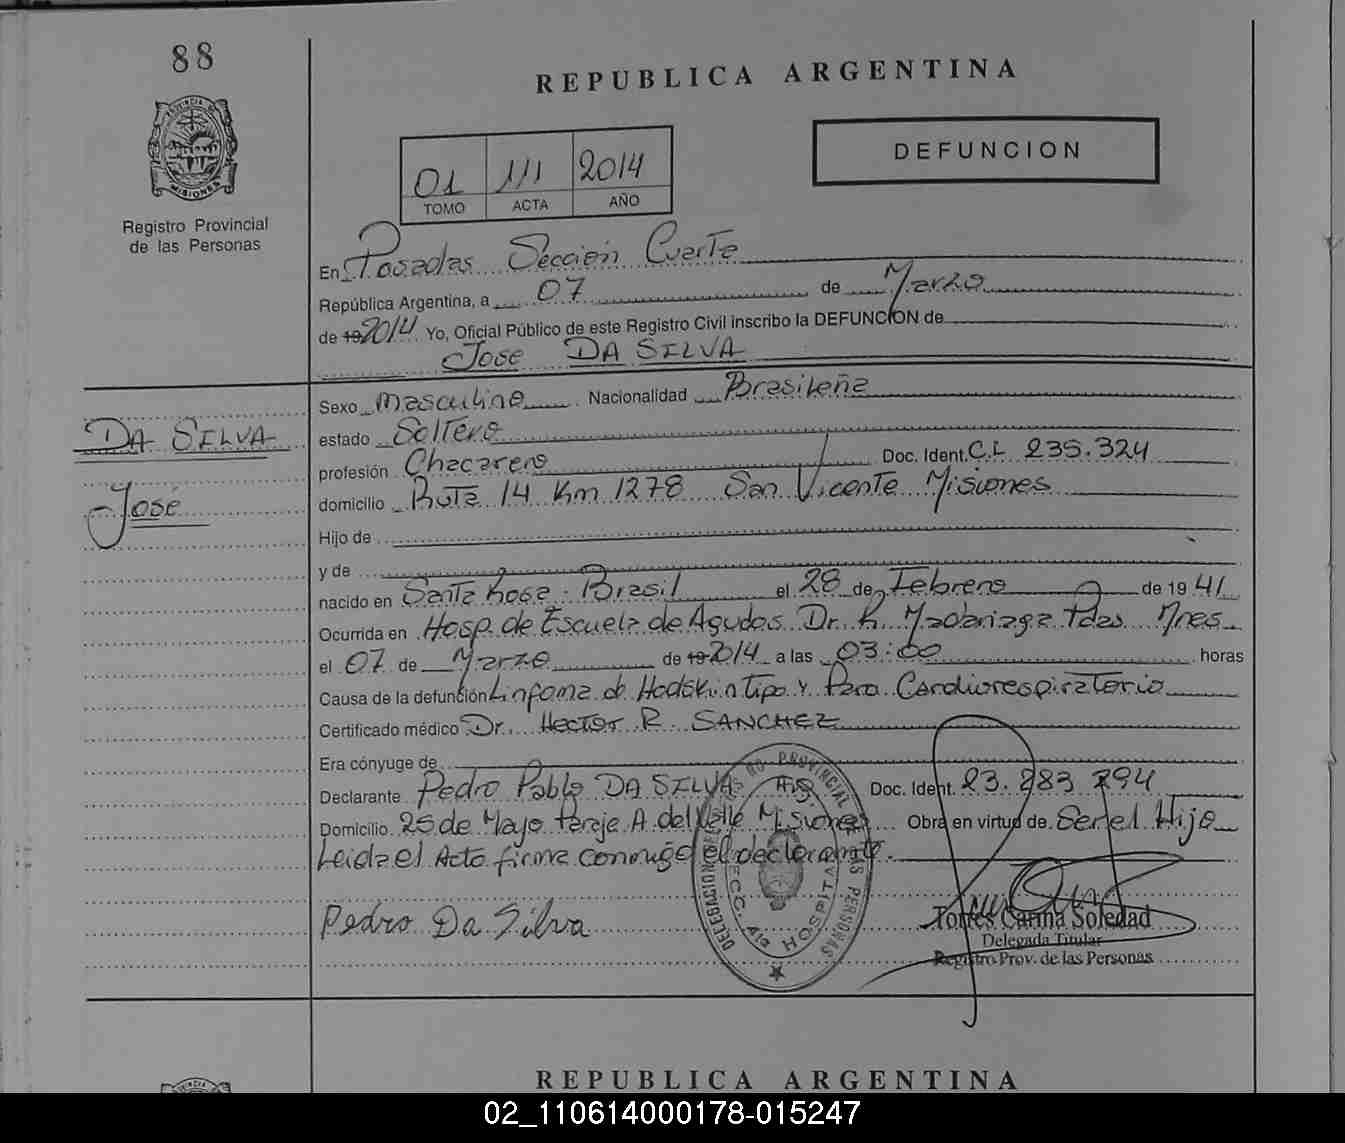 88
PROVINCIA DE
MISIONES
Registro Provincial
de las Personas
REPUBLICA ARGENTINA
01 111 2014
TOMO ACTA AÑO
DEFUNCION
En Posadas Sección Cuarta
República Argentina, a 07 de Marzo
de 19 2014 Yo, Oficial Público de este Registro Civil inscribo la DEFUNCION de
Jose DA SILVA
DA SILVA
José
Sexo masculino Nacionalidad Brasileña
estado Soltero
profesión Chacarero Doc. Ident. C.I. 235.324
domicilio Ruta 14 Km 1278 San Vicente Misiones
Hijo de
y de
nacido en Santa Rosa - Brasil el 28 de Febrero de 1941
Ocurrida en Hosp. de Escuela de Agudos Dr. R. Madariaga Pdas Mnes
el 07 de Marzo de 19 2014 a las 03:00 horas
Causa de la defunción Linfoma de Hodskin tipo y Paro Cardiorespiratorio
Certificado médico Dr. Hector R. SANCHEZ
Era cónyuge de
Declarante Pedro Pablo DA SILVA Doc. Ident. 23.283.294
Domicilio 25 de Mayo Paraje A. del Valle Misiones Obra en virtud de Ser el Hijo
Leida el Acta firma conmigo el declarante.
Pedro Da Silva
DELEGACION REGISTRO PROVINCIAL DE LAS PERSONAS
SECC. 4ta HOSPITAL
Torres Carina Soledad
Delegada Titular
Registro Prov. de las Personas
REPUBLICA ARGENTINA
02_110614000178-015247